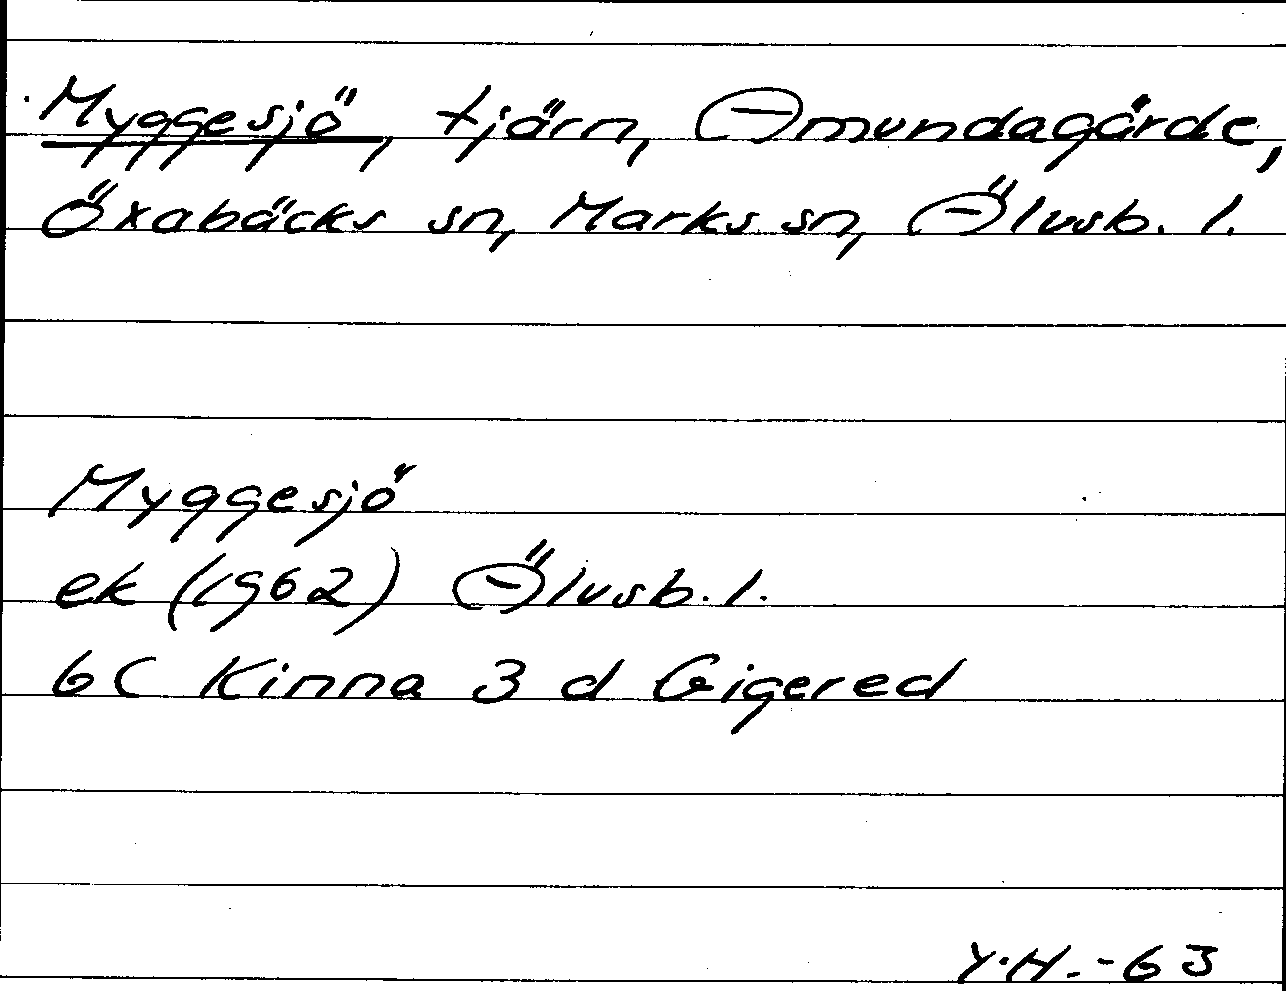 Myggesjö, tjärn, Amundagärde,
Öxabäcks sn, Marks sn, Älvsb. l.
Myggesjö
ek (1962) Älvsb. l.
6C Kinna 3 d Gigered
Y.H.-63